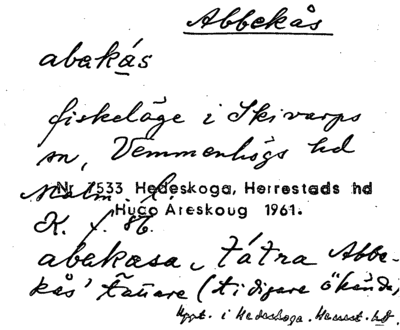 Abbekås
abekás
fiskeläge i Skivarps
sn, Vemmenhögs hd
Malm. l.
Nr 7533 Hedeskoga, Herrestads hd
Hugo Areskoug 1961.
K. f. 86.
abekasa, tátra Abbe-
kås' (tidigare ökända)
Uppt. i Hedeskoga. Herrest. hd.